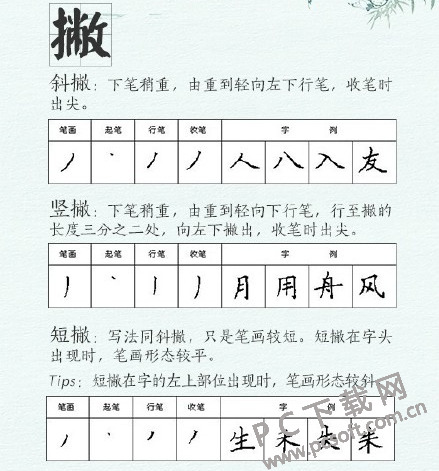 撇
斜撇：下笔稍重，由重到轻向左下行笔，收笔时
出尖。
笔画 起笔 行笔 收笔 字 例
人 八 入 友
竖撇：下笔稍重，由重到轻向下行笔，行至撇的
长度三分之二处，向左下撇出，收笔时出尖。
笔画 起笔 行笔 收笔 字 例
月 用 舟 风
短撇：写法同斜撇，只是笔画较短。短撇在字头
出现时，笔画形态较平。
Tips：短撇在字的左上部位出现时，笔画形态较斜
笔画 起笔 行笔 收笔 字 例
生 禾 失 朱
PC下载网
www.pcsoft.com.cn